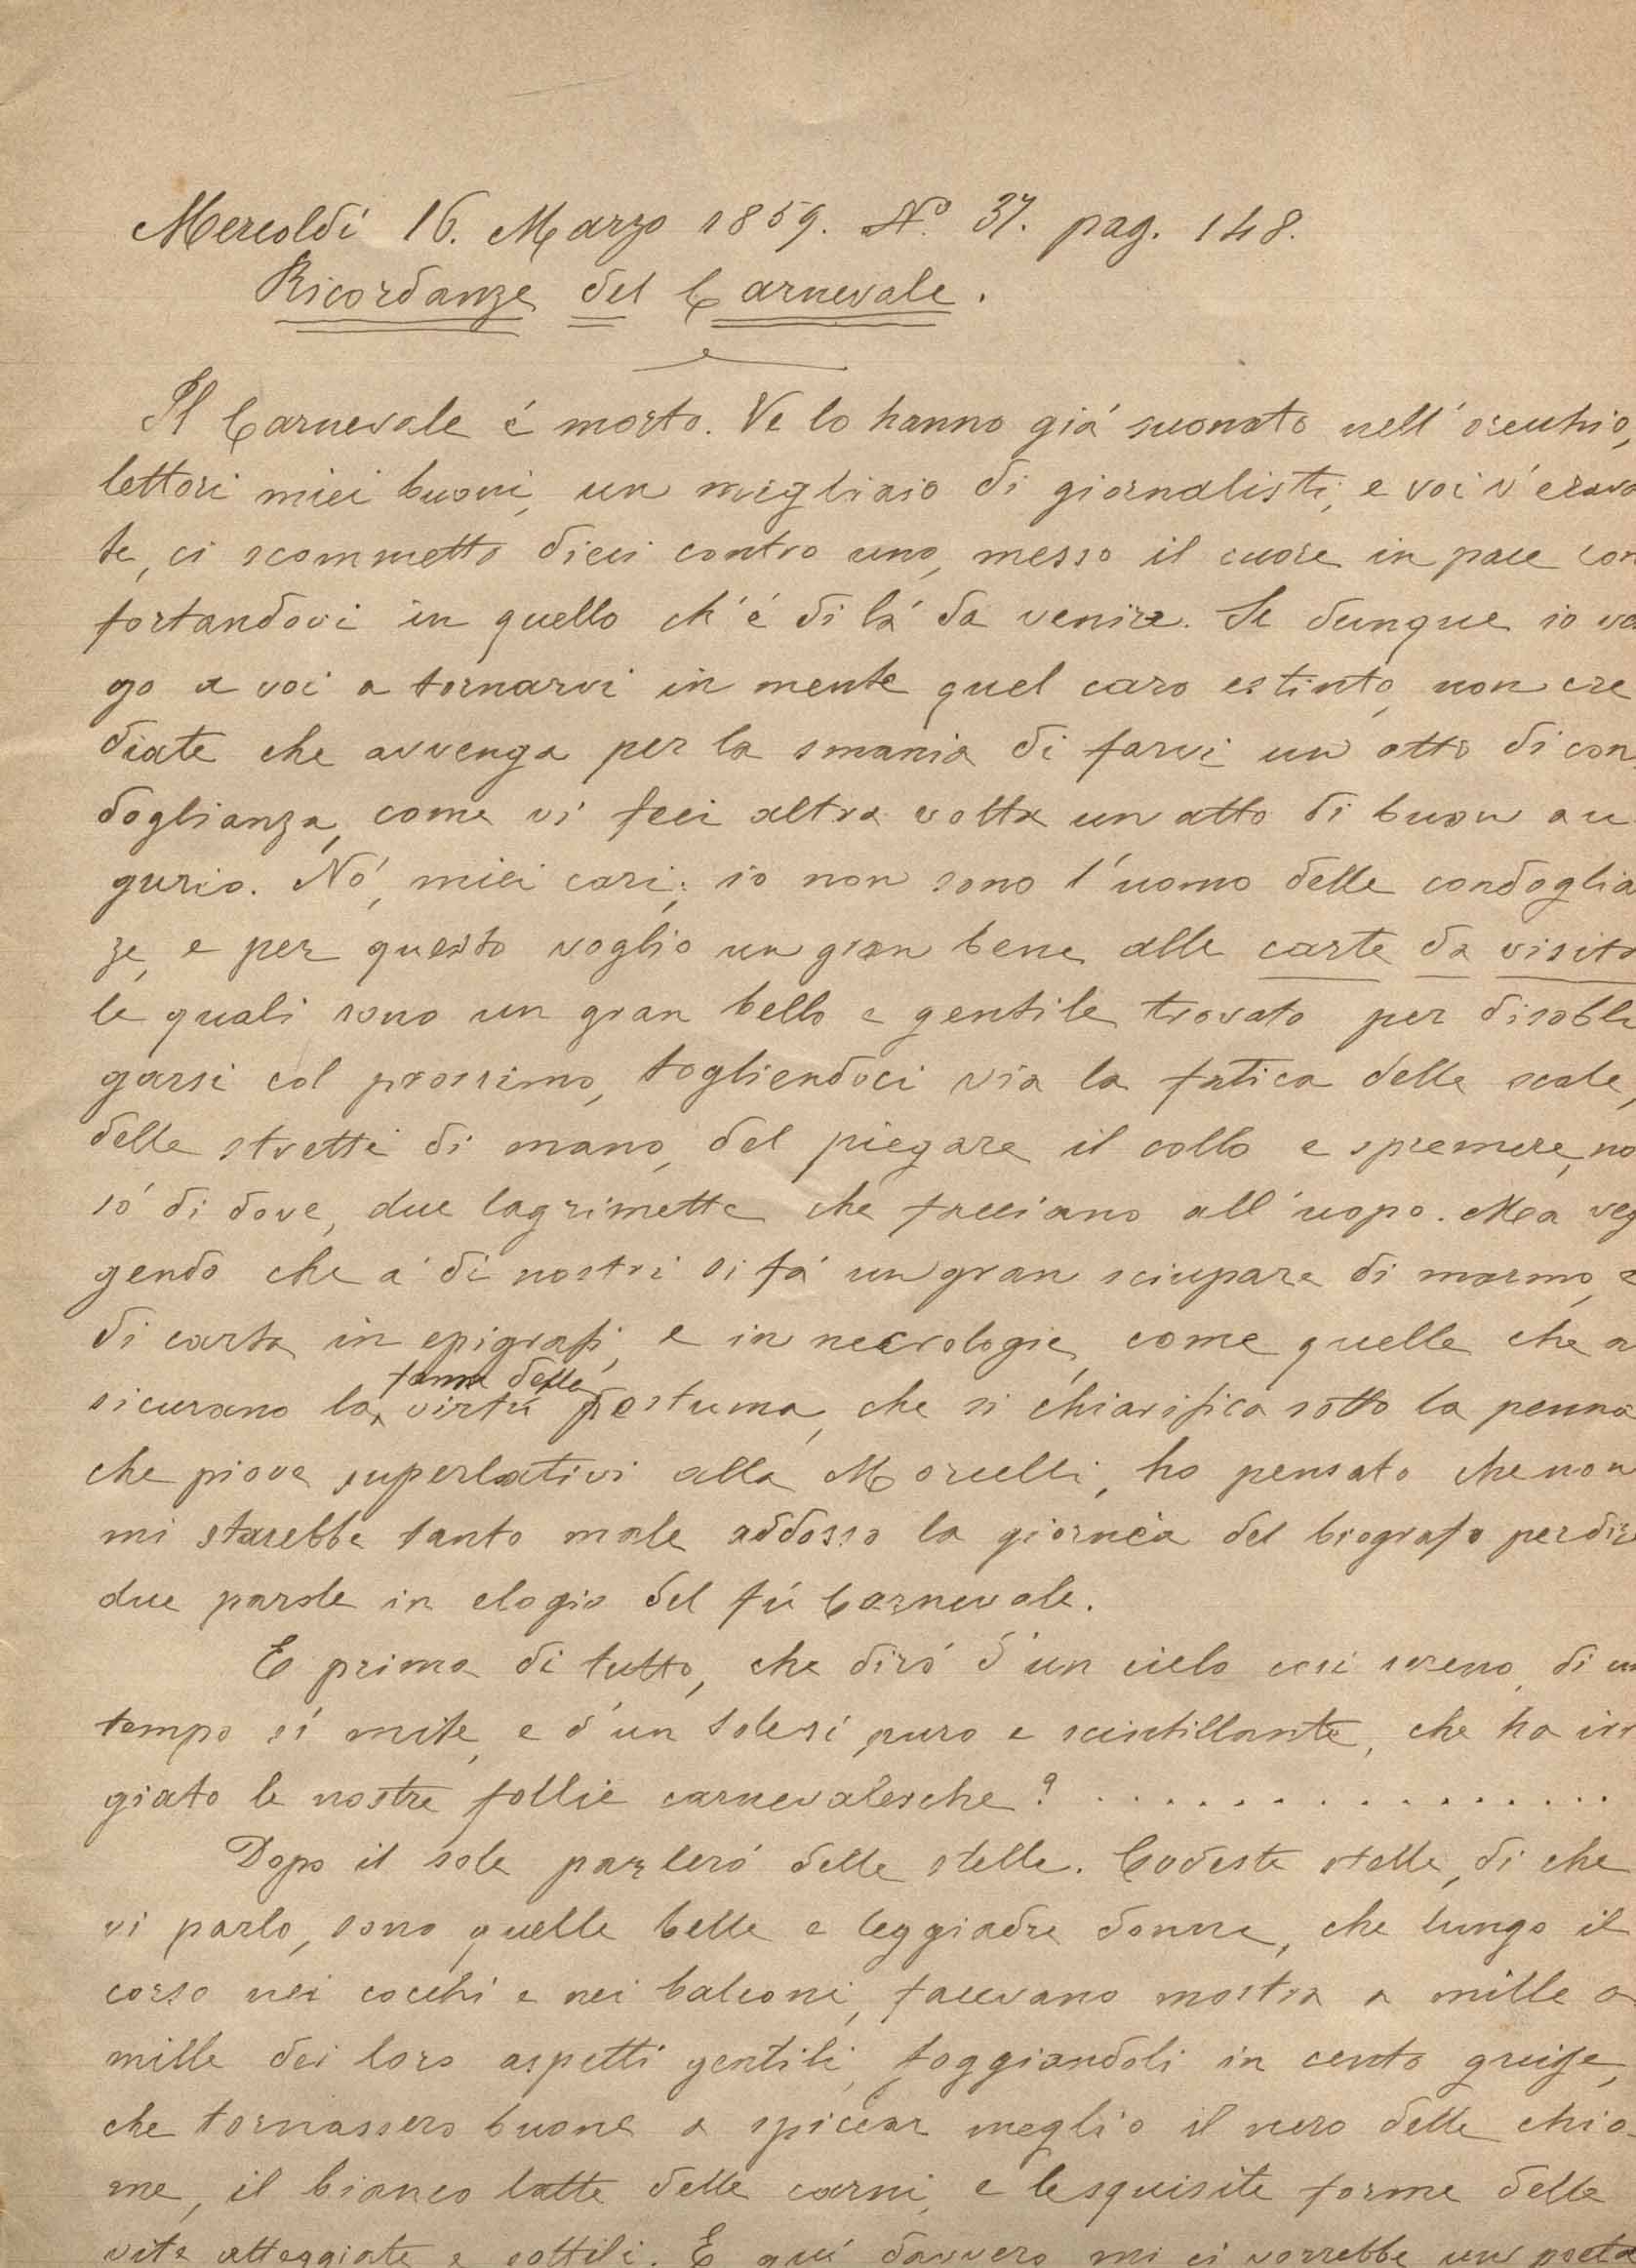 Mercoldí 16. Marzo 1859. Nº. 37. pag. 148.
Ricordanze del Carnevale.
Il Carnevale é morto. Ve lo hanno giá suonato nell' orecchio,
lettori miei buoni, un migliaio di giornalisti, e voi v' erava
te, ci scommetto dieci contro uno, messo il cuore in pace con
fortandovi in quello ch' é di lá da venire. Se dunque io ve
go a voi a tornarvi in mente quel caro estinto, non cre
diate che avvenga per la smania di farvi un atto di con
doglianza, come vi feci altra volta un atto di buon au
gurio. Nó, miei cari; io non sono l' uomo delle condoglia
ze, e per questo voglio un gran bene alle carte da visita
le quali sono un gran bello e gentile trovato per disobbli
garsi col prossimo, togliendoci via la fatica delle scale,
delle strette di mano, del piegare il collo e spremere, no
só di dove, due lagrimette che facciano all' uopo. Ma veg
gendo che a' dí nostri si fá un gran sciupare di marmo, e
di carta in epigrafi, e in necrologie, come quelle che a
sicurano la fama della virtú postuma, che si chiarifica sotto la penna
che piove superlativi alla Morcelli, ho pensato che non
mi starebbe tanto male addosso la giornéa del biografo per dire
due parole in elogio del fú Carnevale.
E prima di tutto, che diró d' un cielo cosí sereno, di un
tempo sí mite, e d' un sole sí puro e scintillante, che ha irr
giato le nostre follie carnevalesche? . . . . . . . . . . . . . . . . .
Dopo il sole parleró delle stelle. Codeste stelle, di che
vi parlo, sono quelle belle e leggiadre donne, che lungo il
corso nei cocchi e nei balconi, facevano mostra a mille a
mille dei loro aspetti gentili, foggiandoli in cento guise,
che tornassero buone a spiccar meglio il nero delle chio-
me, il bianco latte delle carni, e le squisite forme delle
vite atteggiate e sottili. E quí davvero mi ci vorrebbe un poeta